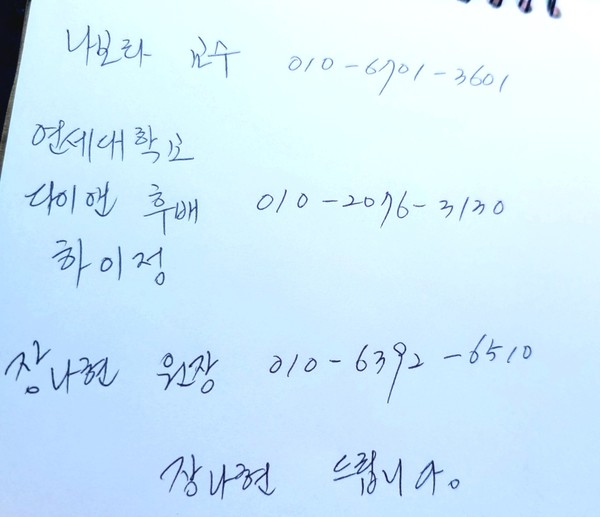 나보라 교수 010-6701-3601
연세대학교
다이앤 후배 010-2076-3130
하이정
장나현 원장 010-6392-6510
장나현 드립니다.